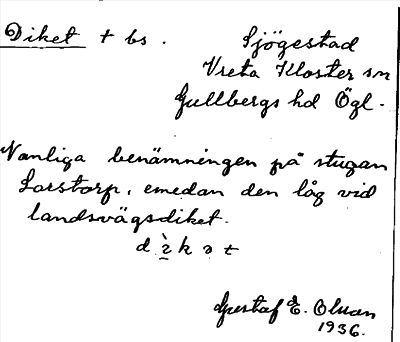 Diket + bs. Sjögestad
Vreta Kloster sn
Gullbergs hd Ögl.
Vanliga benämningen på stugan
Lorstorp, emedan den låg vid
landsvägsdiket.
d ì k ə t
Gustaf E. Olsson
1936.